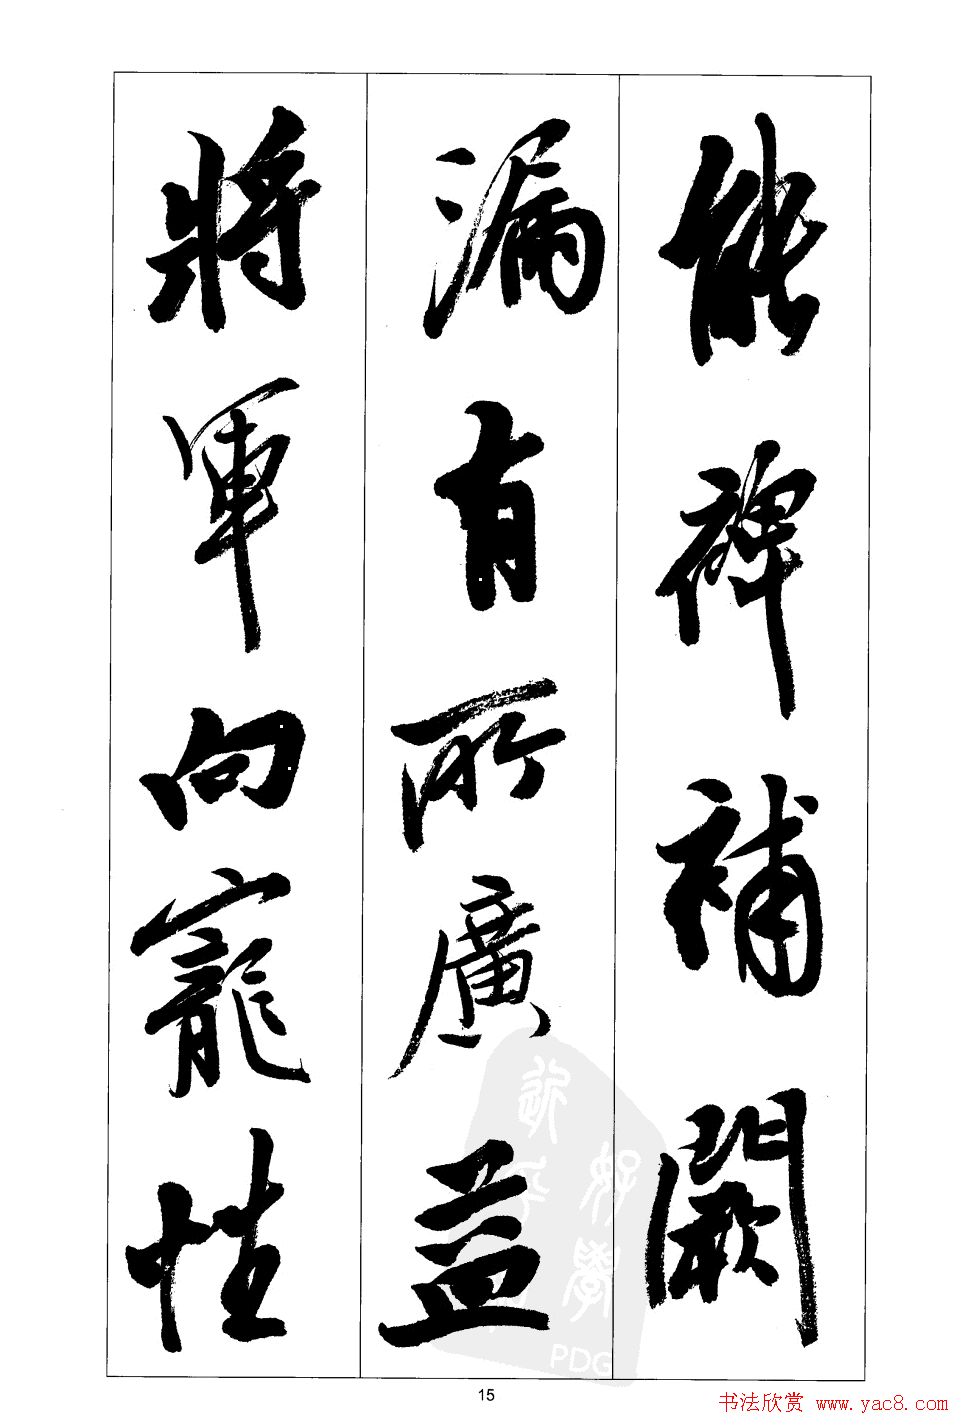 能裨補闕
漏有所廣益
將軍向寵性
15
书法欣赏 www.yac8.com
PDG